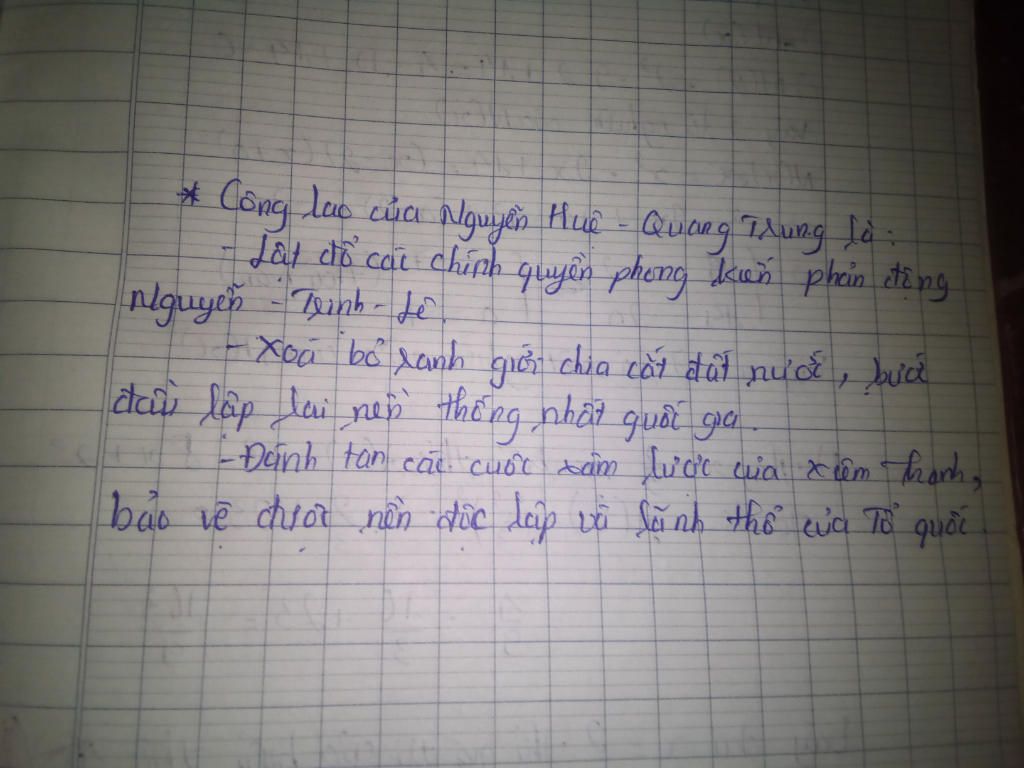 * Công lao của Nguyễn Huệ - Quang Trung là:
- Lật đổ các chính quyền phong kiến phản động
Nguyễn - Trịnh - Lê.
- Xoá bỏ ranh giới chia cắt đất nước, bước
đầu lập lại nền thống nhất quốc gia.
- Đánh tan các cuộc xâm lược của Xiêm - Thanh,
bảo vệ được nền độc lập và lãnh thổ của Tổ quốc.